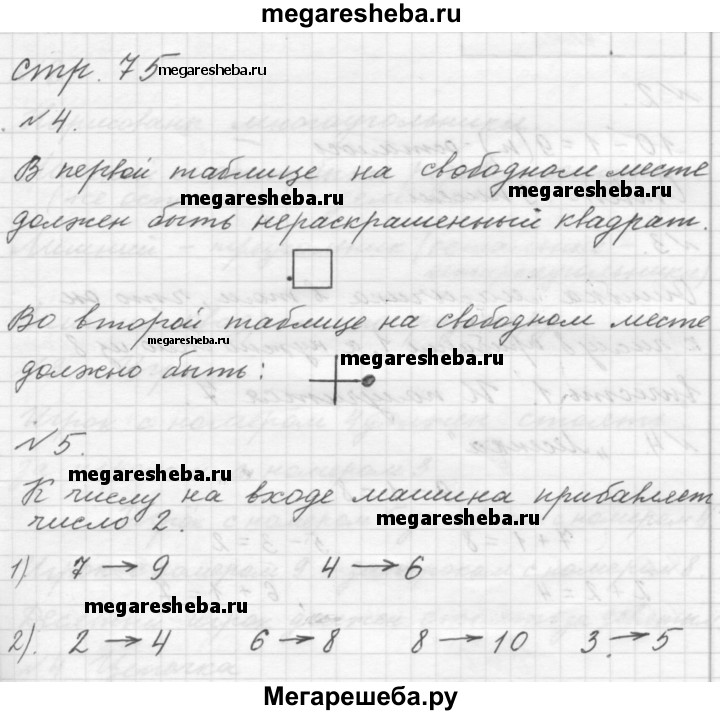 megaresheba.ru
стр. 75 megaresheba.ru
№4.
В первой таблице на свободном месте
megaresheba.ru megaresheba.ru
должен быть нераскрашенный квадрат.
Во второй таблице на свободном месте
megaresheba.ru megaresheba.ru
должно быть:
№5.
megaresheba.ru
К числу на входе машина прибавляет
число 2. megaresheba.ru
1). 7 → 9 4 → 6
megaresheba.ru
2). 2 → 4 6 → 8 8 → 10 3 → 5
Мегарешеба.ру